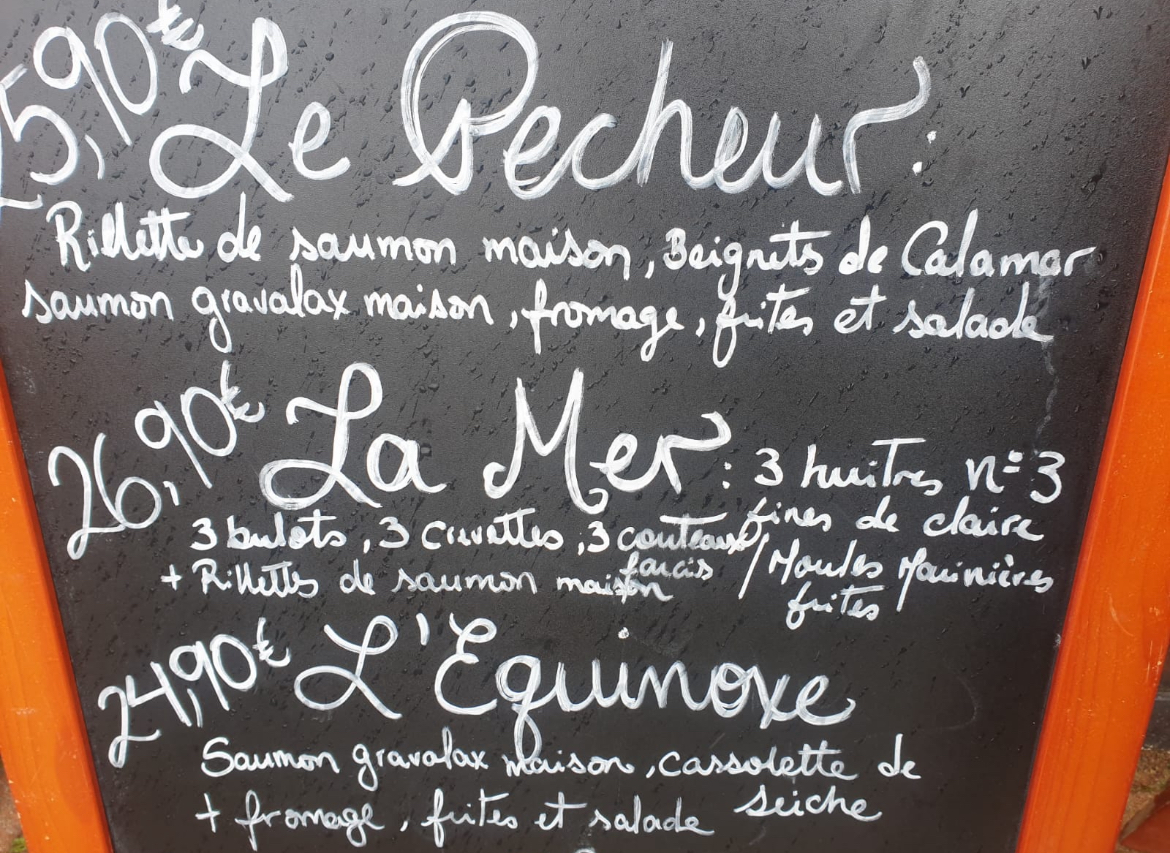 25,90€ Le Pecheur :
Rillette de saumon maison, Beignets de Calamar
saumon gravalax maison, fromage, frites et salade
26,90€ La Mer : 3 huitres n°3
fines de claire
3 bulots, 3 Crevettes, 3 couteaux farcis / Moules Marinières
+ Rillettes de saumon maison frites
24,90€ L'Equinoxe
Saumon gravalax maison, cassolette de
seiche
+ fromage, frites et salade